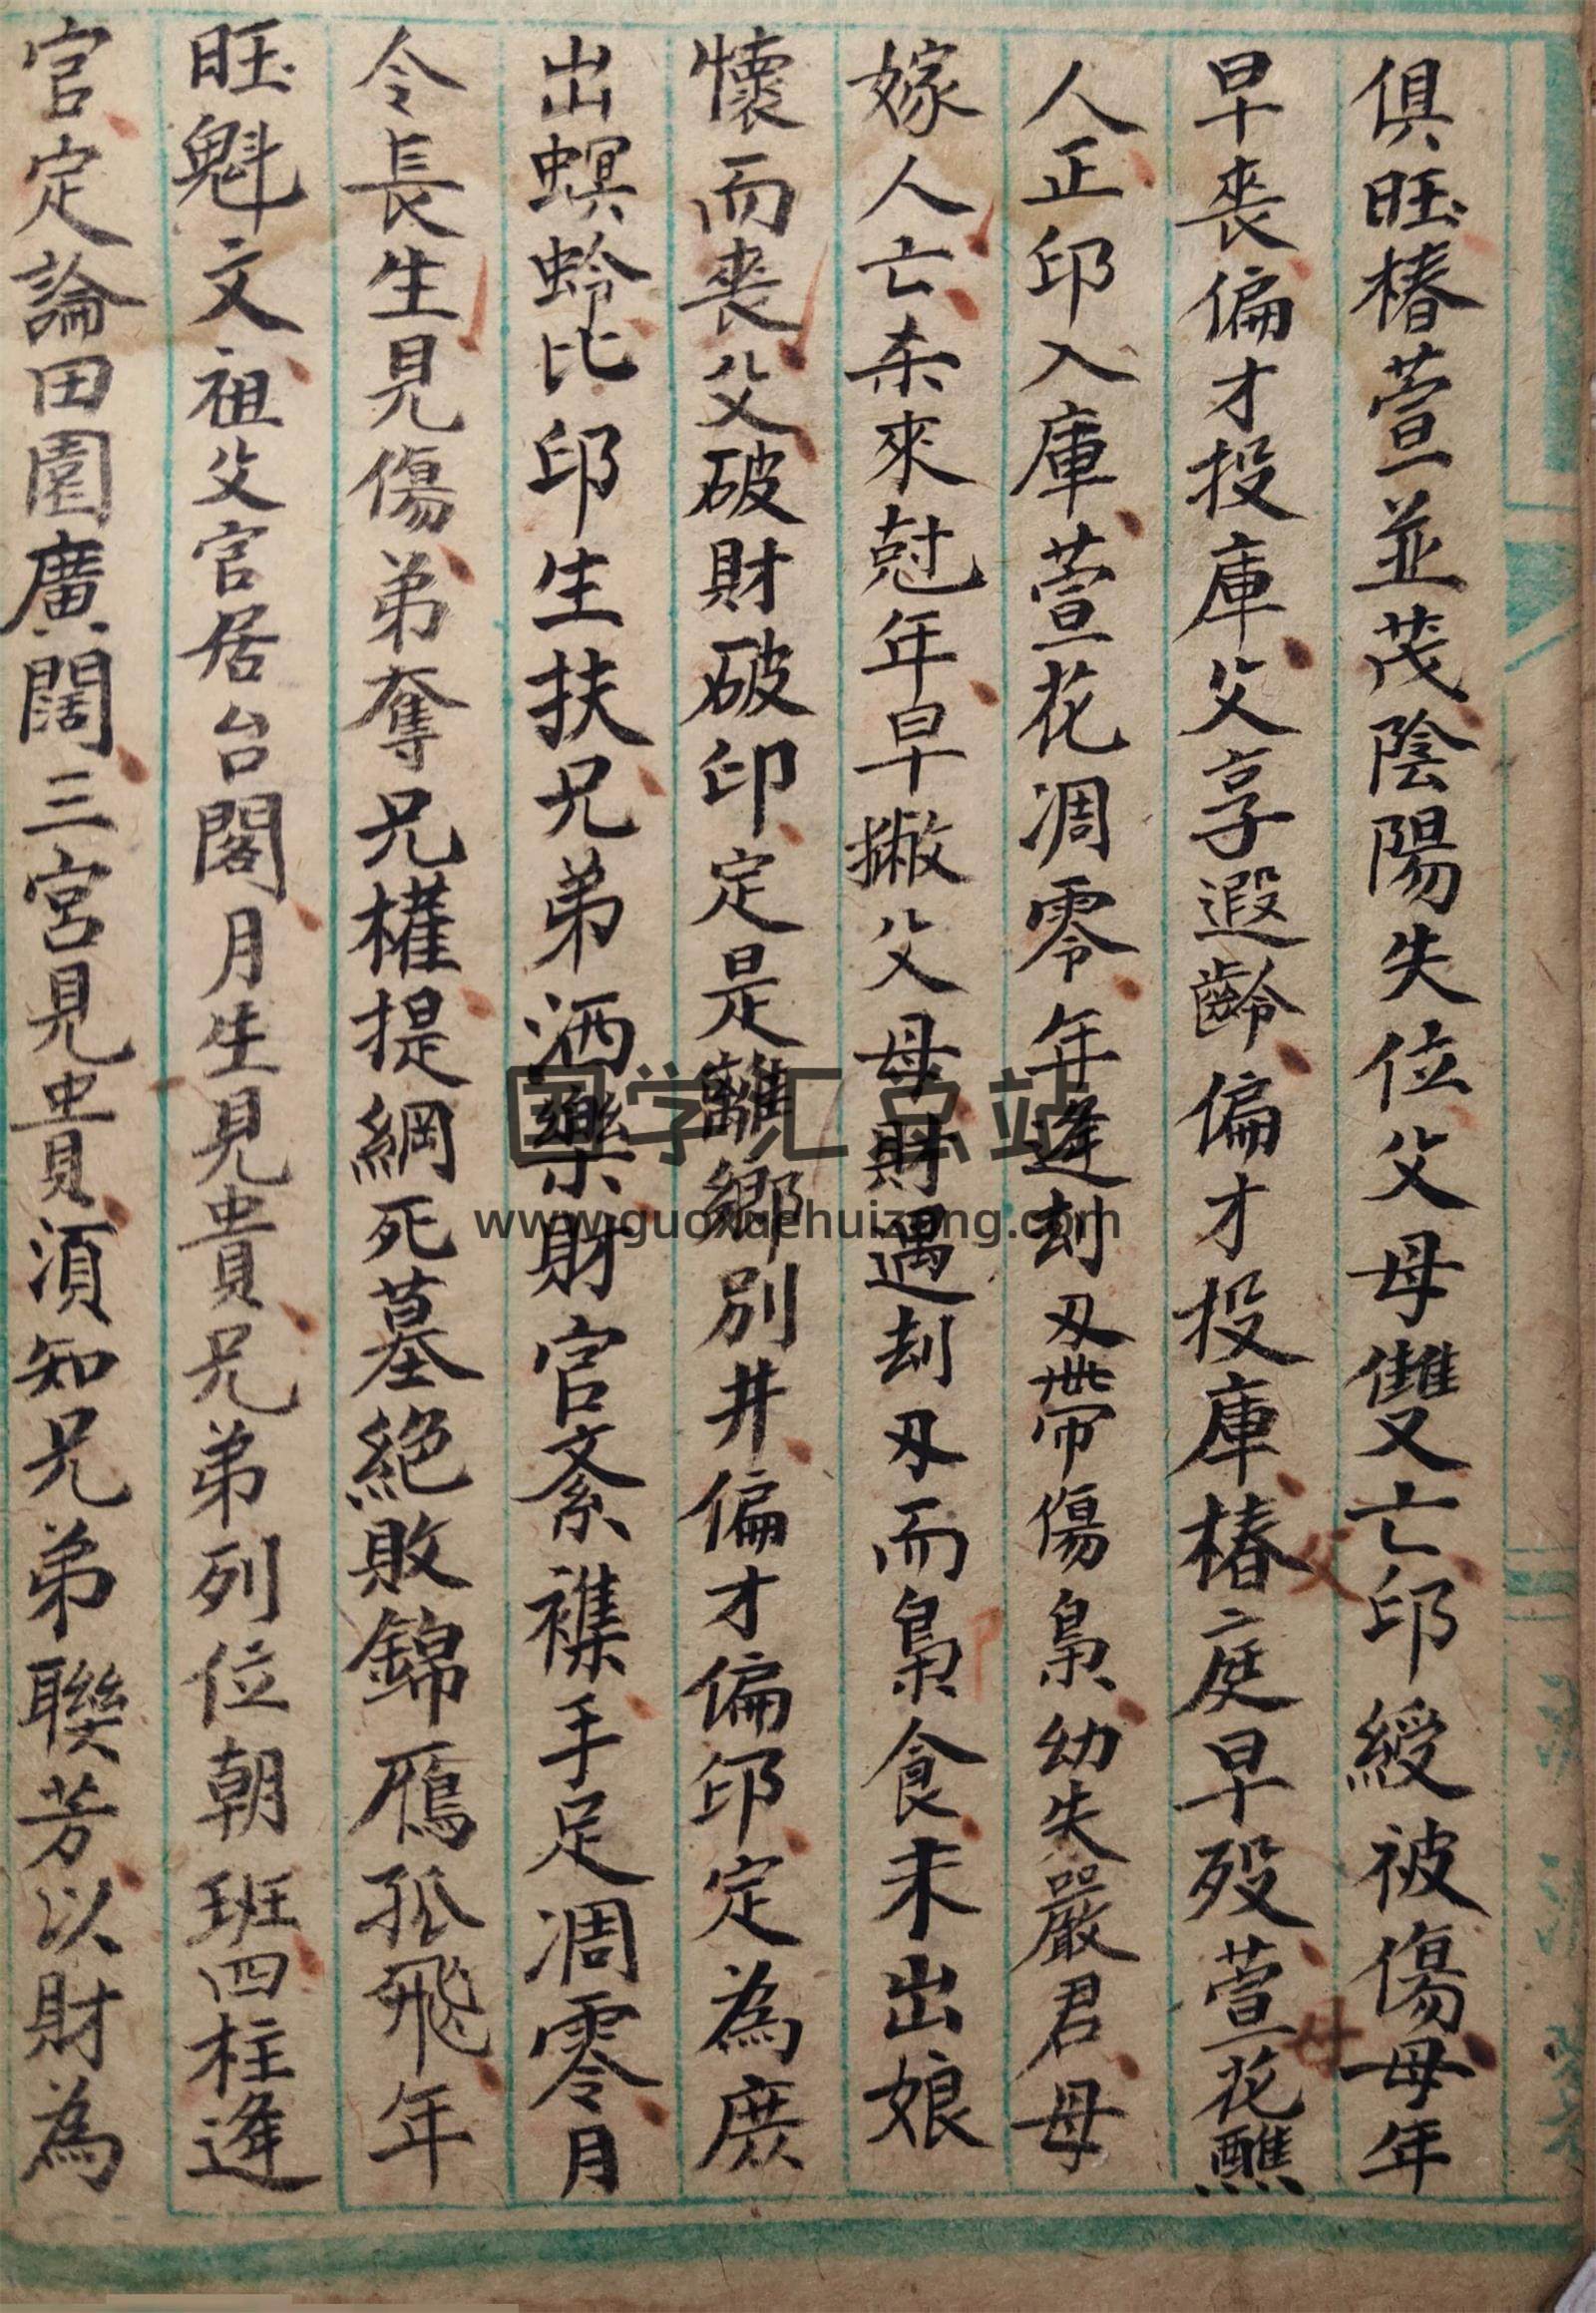 俱旺椿萱並茂陰陽失位父母雙亡印綬被傷母年
早喪偏才投庫父享遐齡偏才投庫椿庭早殁萱花醮
人正印入庫萱花凋零年逢刦刄帶傷梟幼失嚴君母
嫁人亡杀來尅年早撇父母財遇刦刄而梟食未出娘
懷而喪父破財破印定是離鄉別井偏才偏印定為庶
出螟蛉比印生扶兄弟洒樂財官紊襍手足凋零月
令長生見傷弟奪兄權提綱死墓絕敗錦雁孤飛年
旺魁文祖父官居台閣月生見貴兄弟列位朝班四柱逢
官定論田園廣闊三宮見貴須知兄弟聯芳以財為
父
母
国学汇总站
www.guoxuehuizong.com